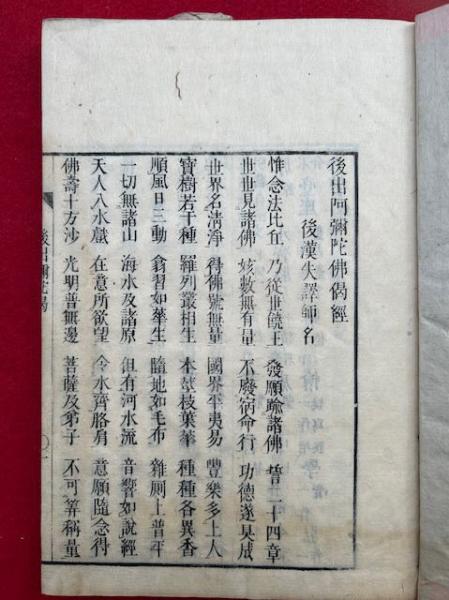 後出阿彌陀佛偈經
後漢失譯師名
惟念法比丘　乃從世饒王　發願踰諸佛　誓二十四章
世世見諸佛　姟數無有量　不廢宿命行　功德遂具成
世界名清淨　得佛號無量　國界平夷易　豐樂多上人
寶樹若干種　羅列叢相生　本莖枝葉華　種種各異香
順風日三動　翕習如華生　隨地如毛布　雜厠上普平
一切無諸山　海水及諸原　但有河水流　音響如說經
天人入水戲　在意所欲望　令水齊胳肩　意願隨念得
佛壽十方沙　光明普無邊　菩薩及弟子　不可筭稱量
後出彌陀偈